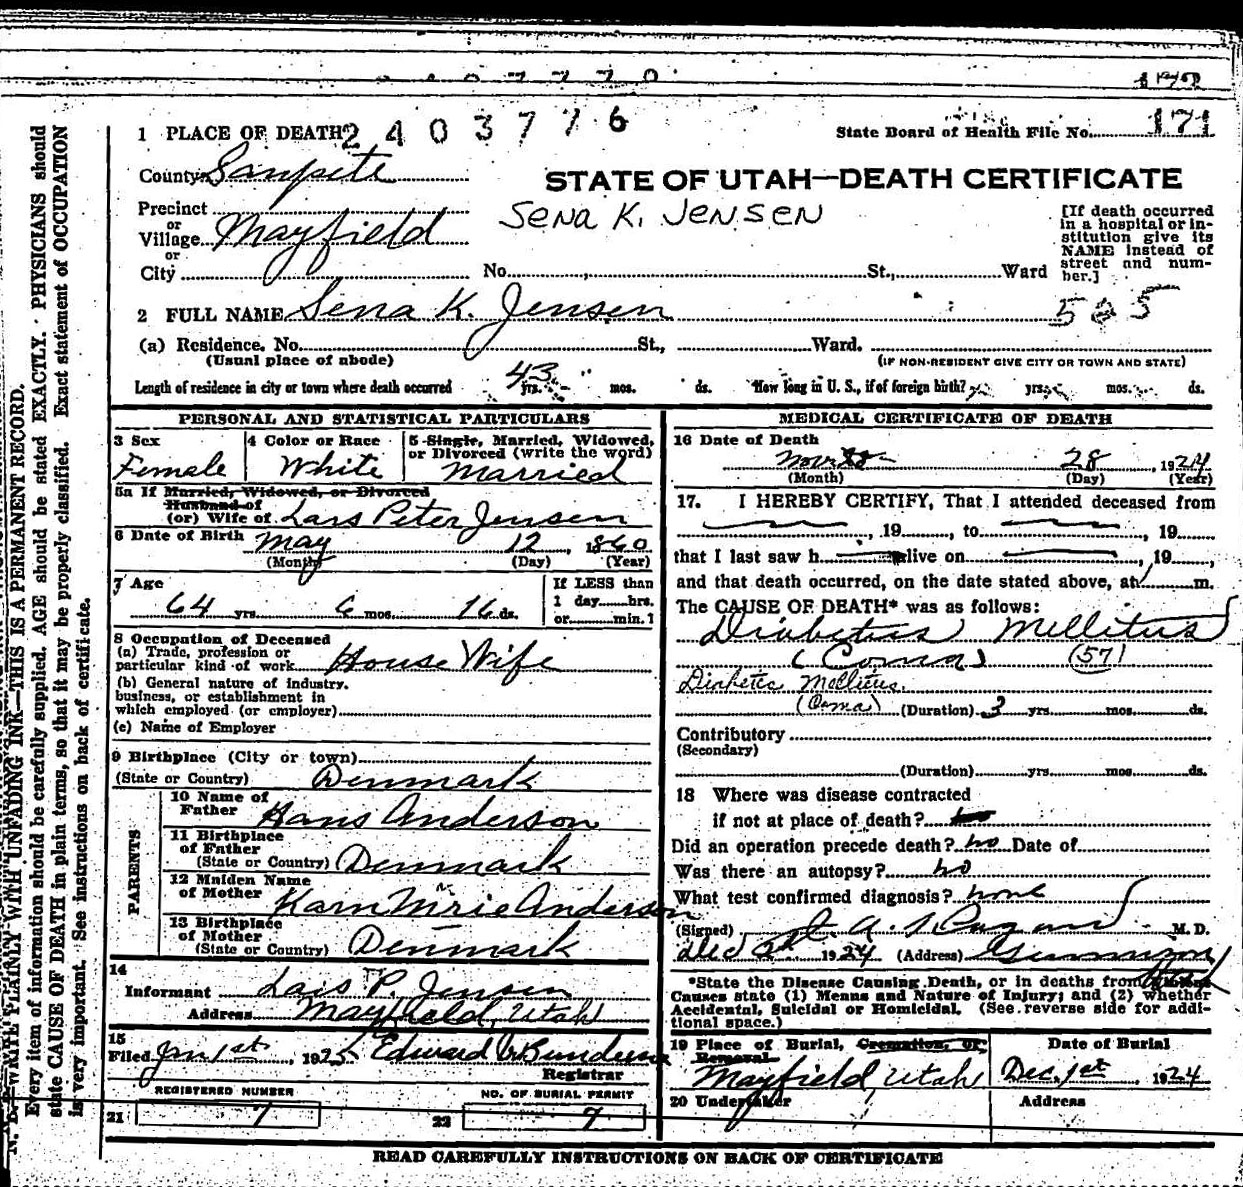 1 PLACE OF DEATH 2 4 0 3 7 7 6
State Board of Health File No. 171
County Sanpete
STATE OF UTAH—DEATH CERTIFICATE
Sena K. Jensen
Precinct
or
Village Mayfield
or
City No. St., Ward
[If death occurred
in a hospital or in-
stitution give its
NAME instead of
street and num-
ber.]
2 FULL NAME Sena K. Jensen
(a) Residence. No. St., Ward.
(Usual place of abode) (IF NON-RESIDENT GIVE CITY OR TOWN AND STATE)
Length of residence in city or town where death occurred 43 yrs. mos. ds. How long in U. S., if of foreign birth? yrs. mos. ds.
PERSONAL AND STATISTICAL PARTICULARS
3 Sex
Female
4 Color or Race
White
5 Single, Married, Widowed,
or Divorced (write the word)
Married
5a If Married, Widowed, or Divorced
Husband of
(or) Wife of Lars Peter Jensen
6 Date of Birth May 12, 1860
(Month) (Day) (Year)
7 Age
64 yrs. 6 mos. 16 ds.
If LESS than
1 day hrs.
or min.?
8 Occupation of Deceased
(a) Trade, profession or
particular kind of work House Wife
(b) General nature of industry,
business, or establishment in
which employed (or employer)
(c) Name of Employer
9 Birthplace (City or town)
(State or Country) Denmark
PARENTS
10 Name of
Father Hans Anderson
11 Birthplace
of Father
(State or Country) Denmark
12 Maiden Name
of Mother Karn Mrie Anderson
13 Birthplace
of Mother
(State or Country) Denmark
14
Informant Lars P. Jensen
Address Mayfield, Utah
15
Filed Jan 1st, 1925 Edward
Registrar
REGISTERED NUMBER
21 7
NO. OF BURIAL PERMIT
22 9
MEDICAL CERTIFICATE OF DEATH
16 Date of Death
Nov 28, 1924
(Month) (Day) (Year)
17. I HEREBY CERTIFY, That I attended deceased from
, 19 , to , 19
that I last saw h alive on , 19 ,
and that death occurred, on the date stated above, at m.
The CAUSE OF DEATH* was as follows:
Diabetus Mellitus
(Coma) (57)
Diabetes Mellitus
(Coma) (Duration) 3 yrs. mos. ds.
Contributory
(Secondary)
(Duration) yrs. mos. ds.
18 Where was disease contracted
if not at place of death?
Did an operation precede death? no Date of
Was there an autopsy? no
What test confirmed diagnosis? none
(Signed) M. D.
Dec 2nd 1924 (Address) Gunnison
Utah
*State the Disease Causing Death, or in deaths from
Causes state (1) Means and Nature of Injury; and (2) whether
Accidental, Suicidal or Homicidal. (See reverse side for addi-
tional space.)
19 Place of Burial, Cremation, or
Removal
Mayfield, Utah
Date of Burial
Dec. 1st, 1924
20 Undertaker Address
READ CAREFULLY INSTRUCTIONS ON BACK OF CERTIFICATE
N. B.—WRITE PLAINLY WITH UNFADING INK—THIS IS A PERMANENT RECORD.
Every item of information should be carefully supplied. AGE should be stated EXACTLY. PHYSICIANS should
state CAUSE OF DEATH in plain terms, so that it may be properly classified. Exact statement of OCCUPATION
is very important. See instructions on back of certificate.